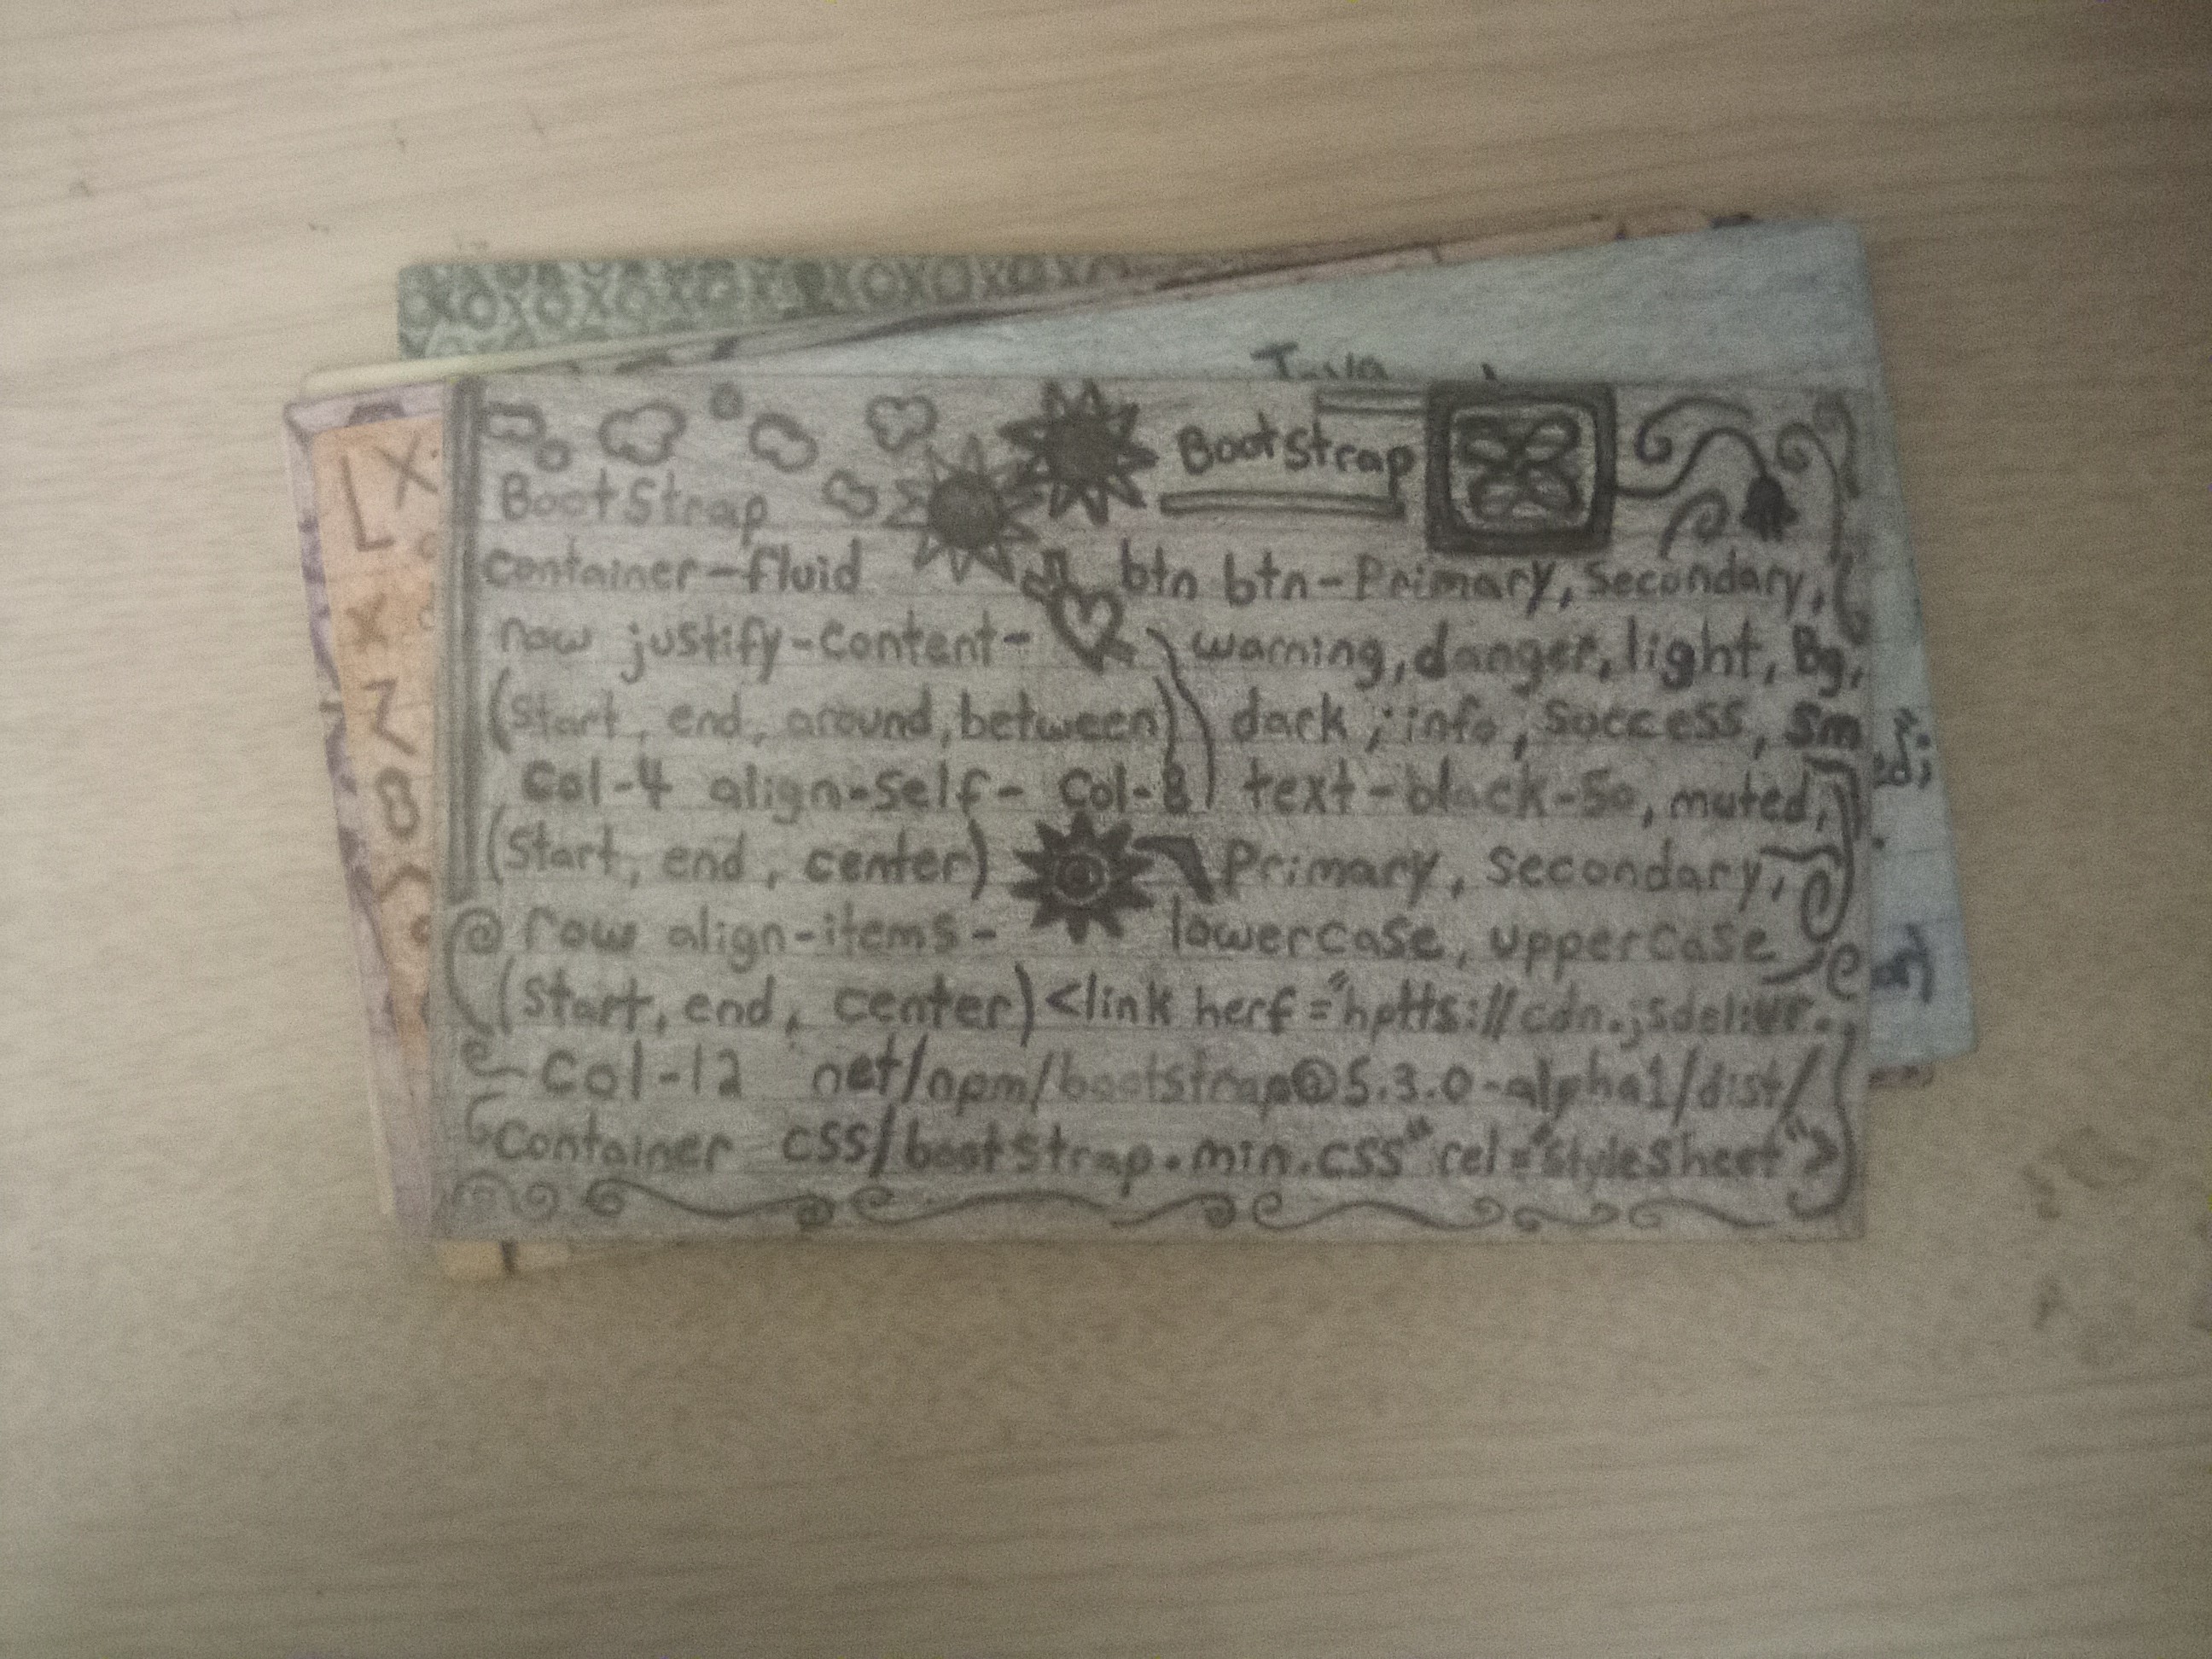 Java
LX
X
Z
8
Y
BootStrap
container-fluid
row justify-content-
(Start, end, around, between)
Col-4 align-self- Col-8
(Start, end, center)
row align-items-
(Start, end, center)
Col-12
Container
Bootstrap
btn btn-Primary, Secondary,
warning, danger, light, Bg,
dark, info, Success, Sm
text-black-50, muted,
Primary, Secondary,
lowercase, uppercase
<link herf="hptts://cdn.jsdelivr.
net/npm/bootstrap@5.3.0-alpha1/dist/
css/bootstrap.min.css" rel="stylesheet">